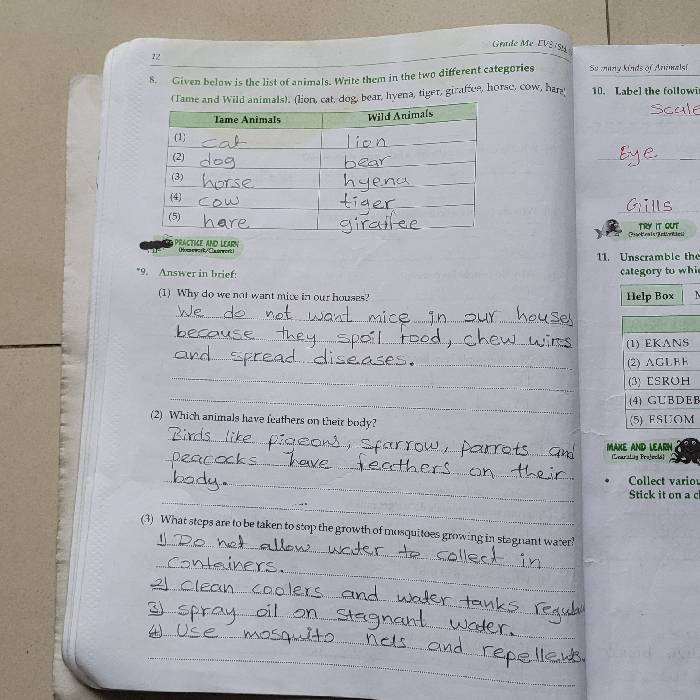 12
Grade Me EVS
8. Given below is the list of animals. Write them in the two different categories
(Tame and Wild animals). (lion, cat, dog, bear, hyena, tiger, giraffee, horse, cow, hare)
Tame Animals Wild Animals
(1) cat lion
(2) dog bear
(3) horse hyena
(4) cow tiger
(5) hare giraffee
PRACTICE AND LEARN
(Homework/Classwork)
*9. Answer in brief:
(1) Why do we not want mice in our houses?
We do not want mice in our houses
because they spoil food, chew wires
and spread diseases.
(2) Which animals have feathers on their body?
Birds like pigeons, sparrow, parrots and
peacocks have feathers on their
body.
(3) What steps are to be taken to stop the growth of mosquitoes growing in stagnant water?
1) Do not allow water to collect in
containers.
2) clean coolers and water tanks
3) spray oil on stagnant water.
4) Use mosquito nets and repellents.
So many kinds of Animals!
10. Label the
Scale
Eye
Gills
TRY IT OUT
11. Unscramble the
category to
Help Box
(1) EKANS
(2) AGLEE
(3) ESROH
(4) GUBDEB
(5) ESUOM
MAKE AND LEARN
(Learning Projects)
• Collect
Stick it on a